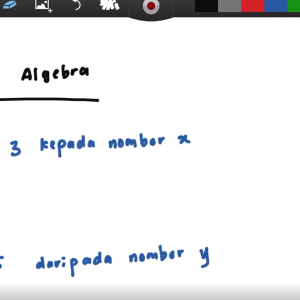 Algebra
3 kepada nombor x
5 daripada nombor y